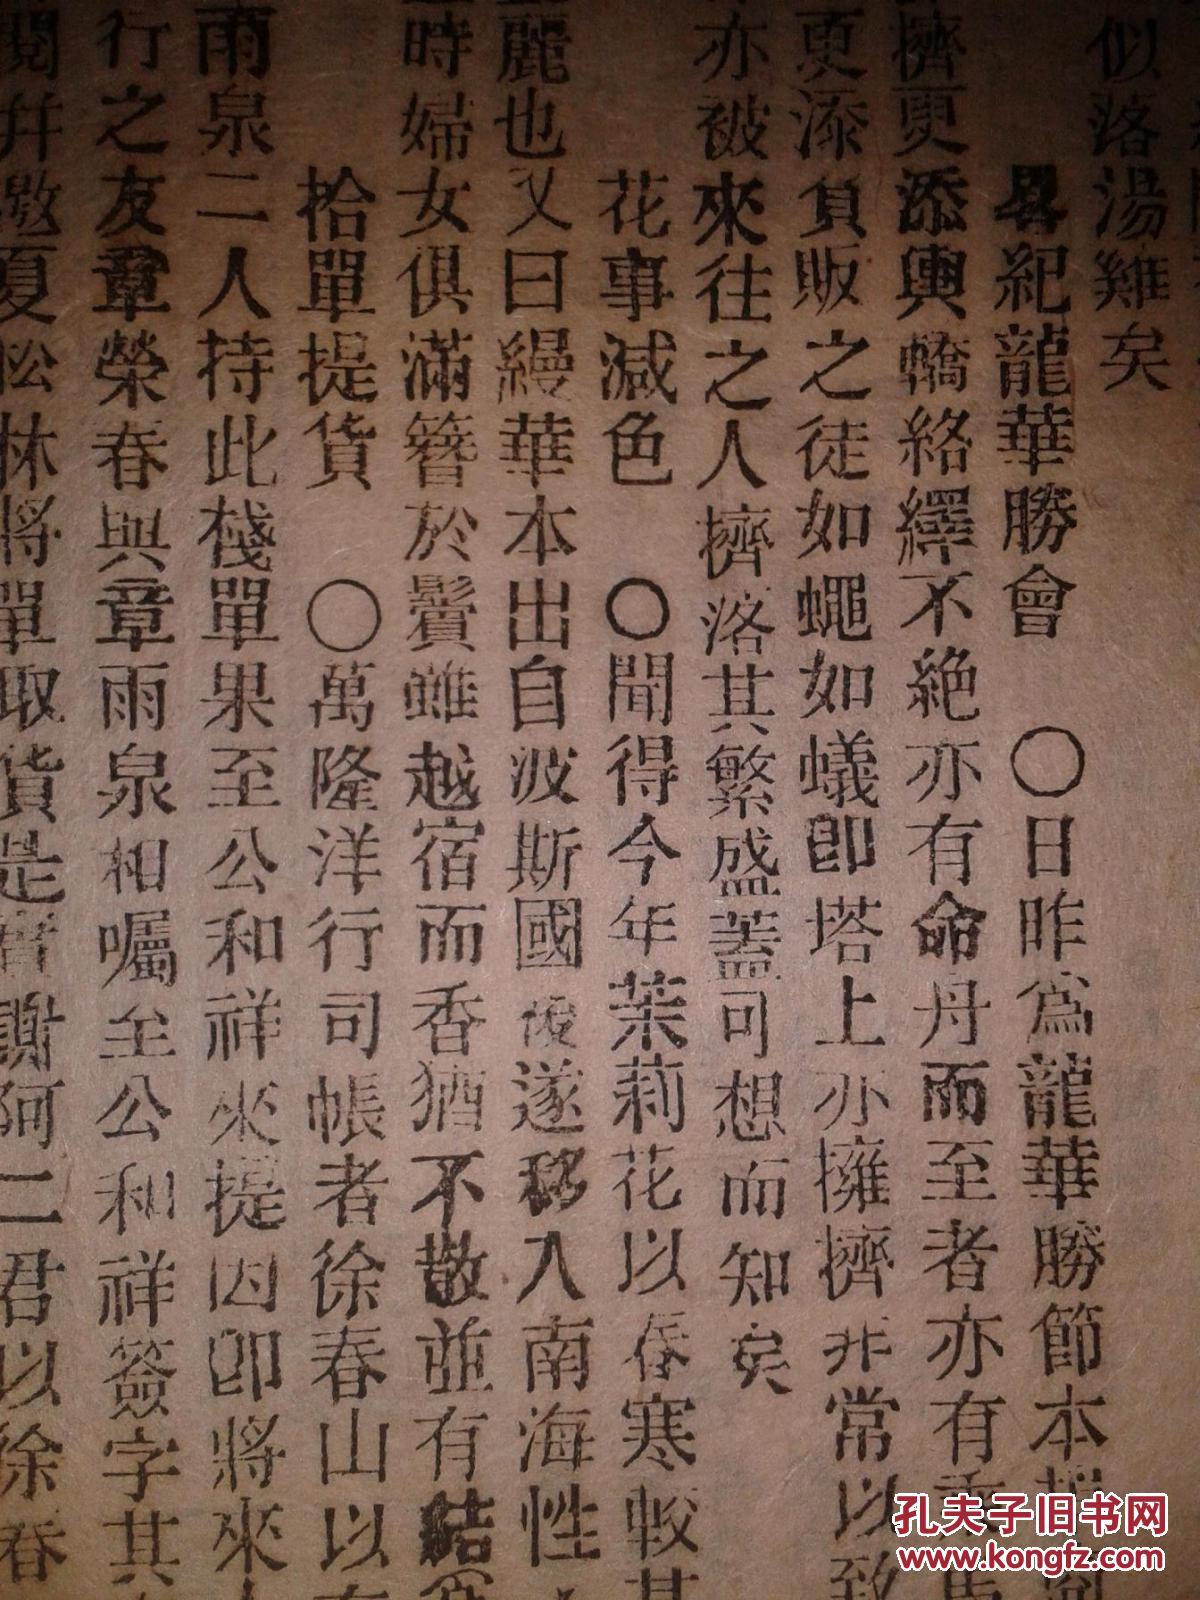 似落湯雞矣
畧紀龍華勝會　〇日昨為龍華勝節本
擠更添輿轎絡繹不絕亦有命舟而至者亦有乘馬
更添負販之徒如蠅如蟻即塔上亦擁擠非常以致
亦被來往之人擠落其繁盛蓋可想而知矣
花事減色　〇聞得今年茉莉花以春寒較甚
麗也又曰縵華本出自波斯國後遂移入南海性
時婦女俱滿簪於鬢雖越宿而香猶不散並有結
拾單提貨　〇萬隆洋行司帳者徐春山以
雨泉二人持此棧單果至公和祥來提因即將來
行之友章榮春與章雨泉相囑至公和祥簽字其
閱并邀夏松林將單取貨是實謝阿二君以徐春
孔夫子旧书网
www.kongfz.com